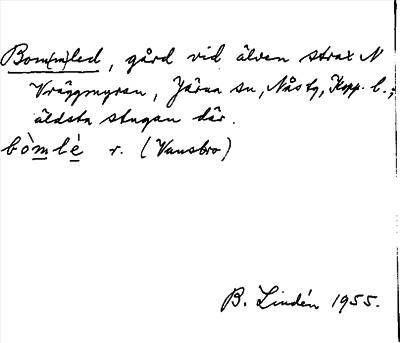 Bom(m)led, gård vid älven strax N
Vräggmyren, Järna sn, Nås tg, Kopp. l.;
äldsta stugan där.
bòmlè r. (Vansbro)
B. Lindén 1955.